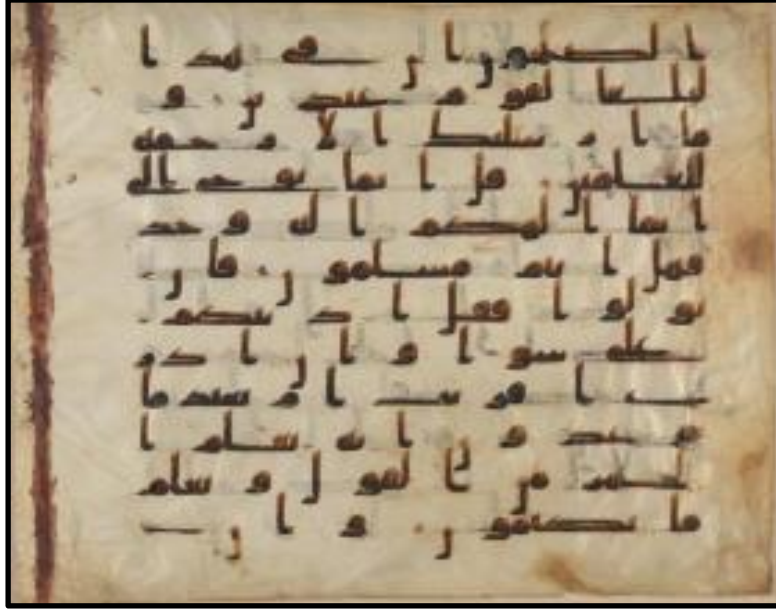 الصلحون ان في هذا
لبلغا لقوم عبدين و
ما ارسلنك الا رحمه
للعلمين قل انما يوحى الي
انما الهكم اله وحد
فهل انتم مسلمون فان
تولوا فقل اذنتكم
على سوا وان ادر
ي اقريب ام بعيد ما
توعدون انه يعلم ا
لجهر من القول ويعلم
ما تكتمون وان